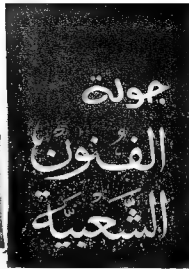 جولة
الفُنون
الشَّعبيَّة